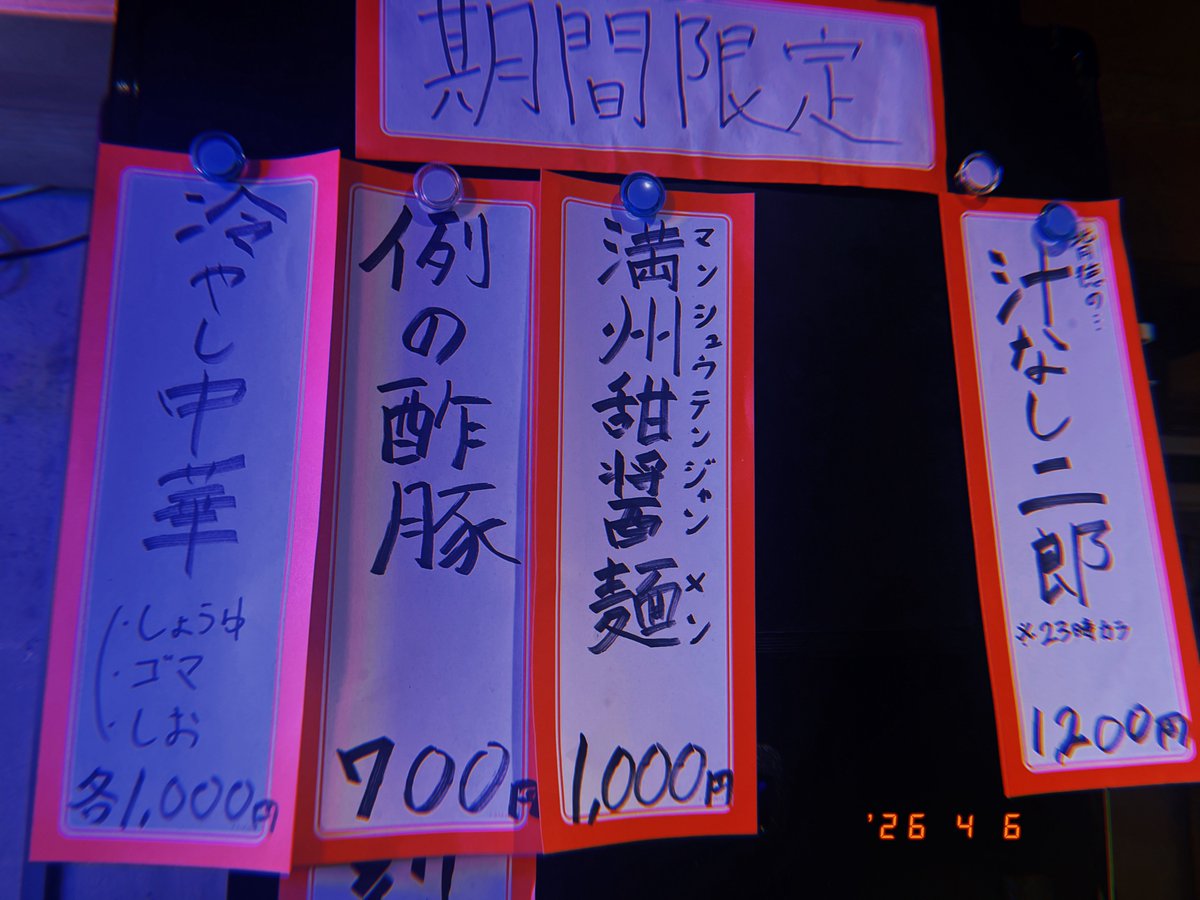 期間限定
汁なし二郎
※23時カラ
1200円
満州甜醤麺
マンシュウテンジャンメン
1,000円
例の酢豚
700円
冷やし中華
・しょうゆ
・ゴマ
・しお
各1,000円
'26 4 6